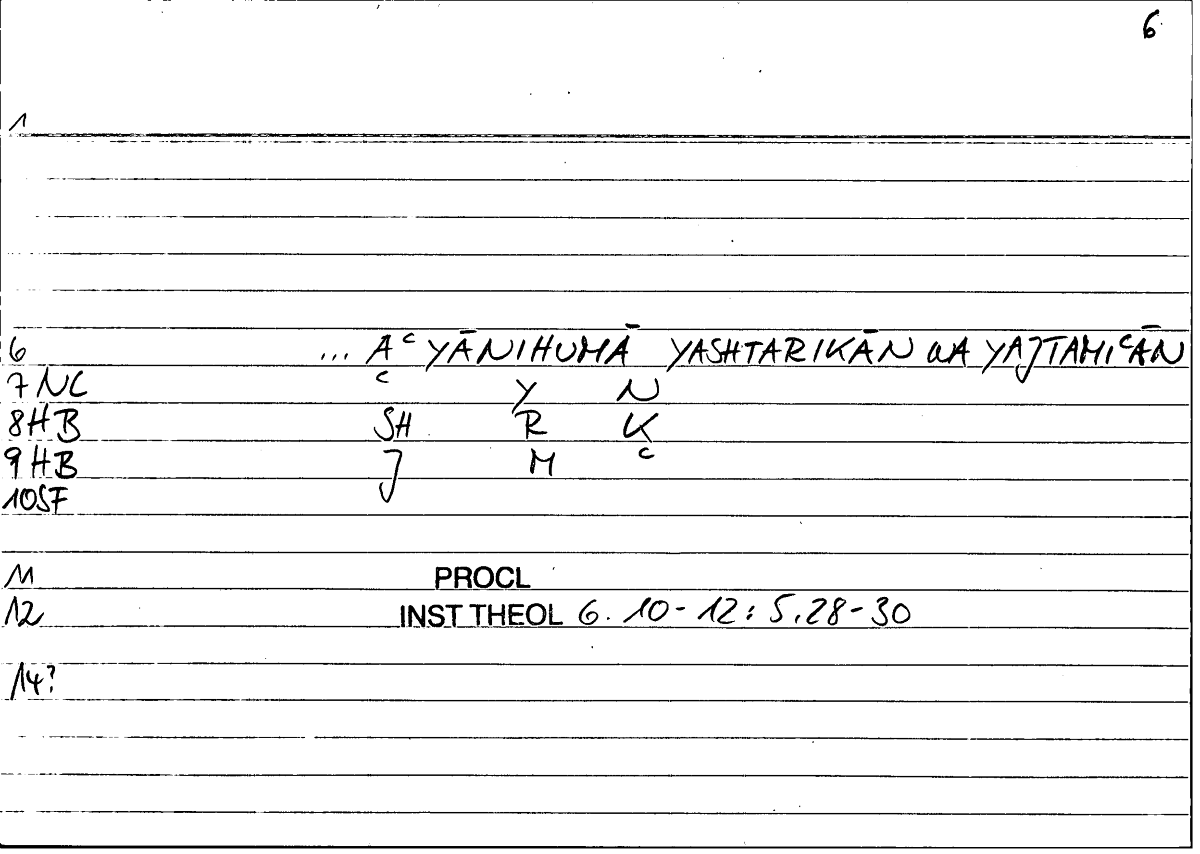 6
1
6 ... AᶜYĀNIHUMĀ YASHTARIKĀN WA YAJTAMIᶜĀN
7 NC ᶜ Y N
8 HB SH R K
9 HB J M ᶜ
10 SF J
11 PROCL
12 INST THEOL 6. 10-12 : 5.28-30
14?